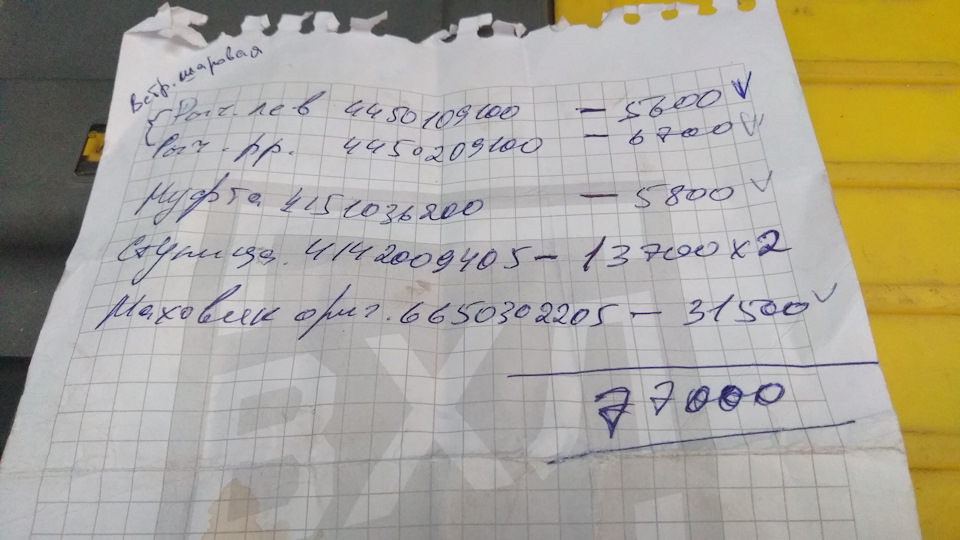 Встр. шаровая
Рыч. лев 4450109100 – 5600 V
Рыч. пр. 4450209100 – 6700 V
Муфта 4151036200 – 5800 V
Ступица. 4142009405 – 13700 х 2
Маховик ориг. 6650302205 – 31500 V
77000